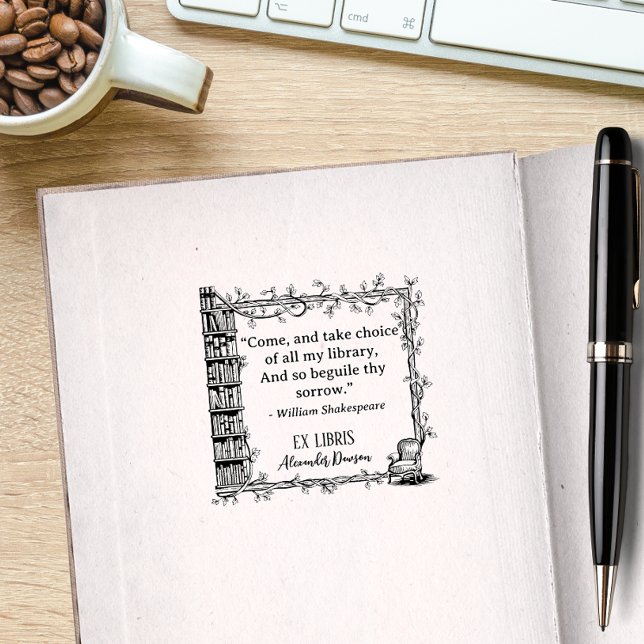 option
alt
command
⌘
“Come, and take choice
of all my library,
And so beguile thy
sorrow.”
- William Shakespeare
EX LIBRIS
Alexander Dawson